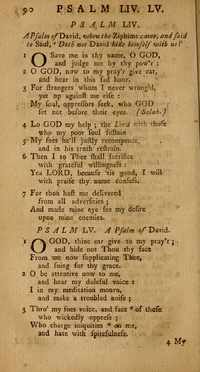 90 PSALM LIV. LV.
PSALM LIV.
A Psalm of David, when the Ziphims came, and said
to Saul, "Doth not David hide himself with us?"
1 O Save me in thy name, O GOD,
and judge me by thy pow'r;
2 O GOD, now to my pray'r give ear,
and hear in this sad hour.
3 For strangers whom I never wrong'd,
up against me rise:
My soul, oppressors seek, who GOD
set not before their eyes. (Selah.)
4 Lo GOD my help; the Lord with those
who my poor soul sustain
5 My foes he'll justly recompence,
and in his truth restrain.
6 Then I to Thee shall sacrifice
with grateful willingness:
Yea LORD, because 'tis good, I will
with praise thy name confess.
7 For thou hast me delivered
from all adversities;
And made mine eye see my desire
upon mine enemies.
PSALM LV. A Psalm of David.
1 O GOD, thine ear give to my pray'r;
and hide not Thou thy face
From me now supplicating Thee,
and suing for thy grace.
2 O be attentive now to me,
and hear my doleful voice:
I in my meditation mourn,
and make a troubled noise;
3 Thro' my foes voice, and face * of those
who wickedly oppress;
Who charge iniquities * on me,
and hate with spitefulness.
4 My